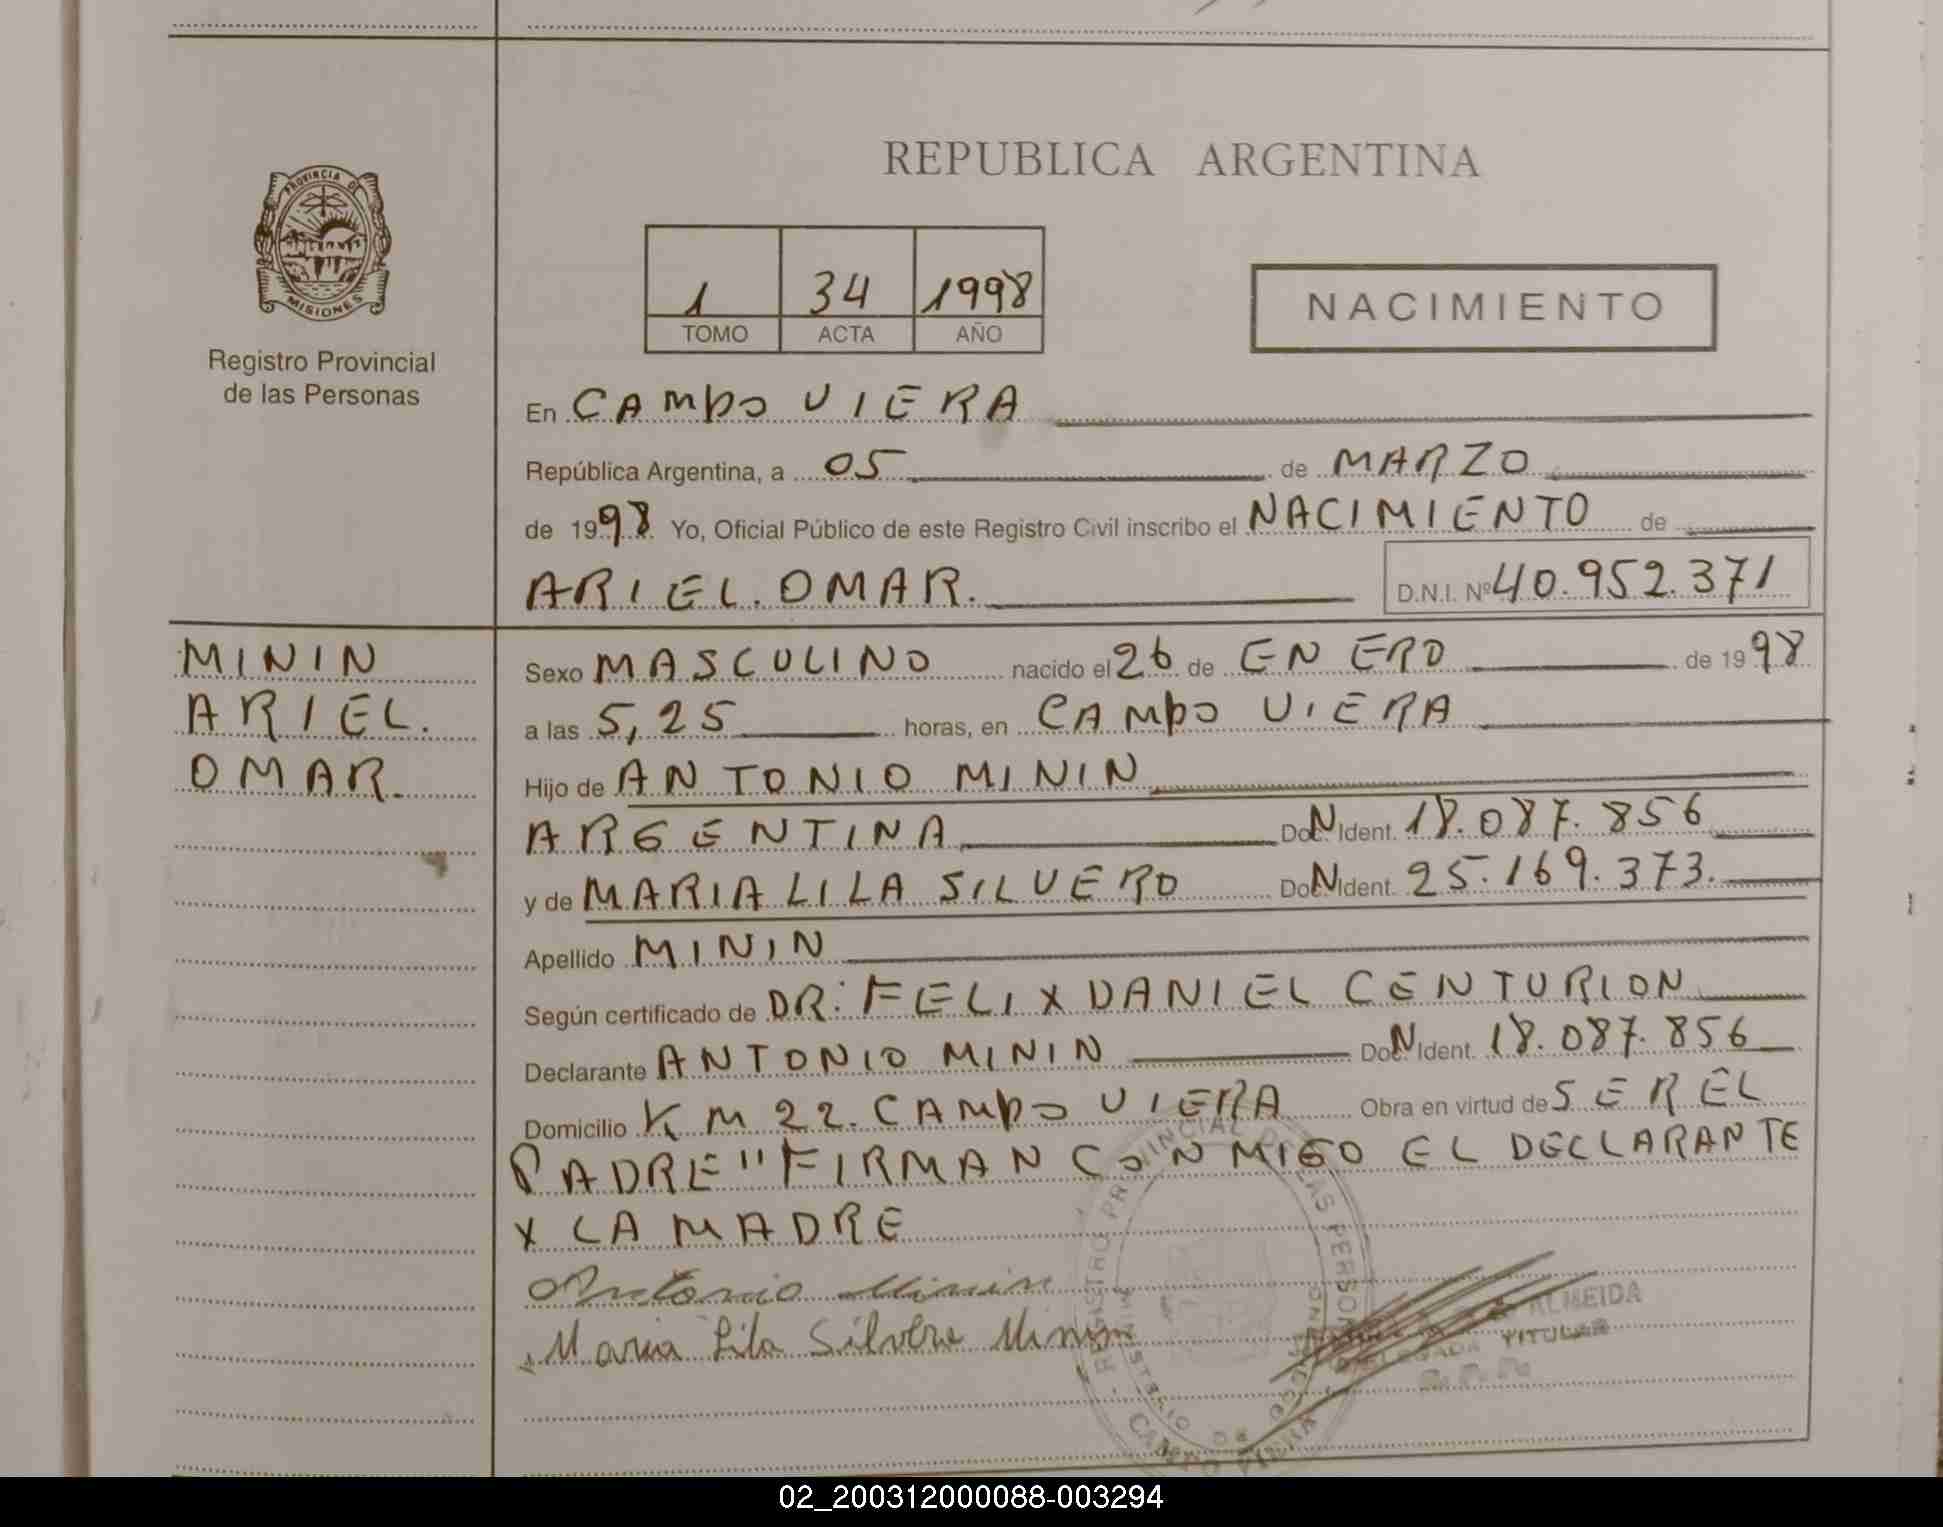 REPUBLICA ARGENTINA
PROVINCIA DE
MISIONES
Registro Provincial
de las Personas
1 34 1998
TOMO ACTA AÑO
NACIMIENTO
En CAMPO VIERA
República Argentina, a 05 de MARZO
de 1998 Yo, Oficial Público de este Registro Civil inscribo el NACIMIENTO de
ARIEL. OMAR. D.N.I. Nº 40.952.371
MININ
ARIEL.
OMAR.
Sexo MASCULINO nacido el 26 de ENERO de 1998
a las 5,25 horas, en CAMPO VIERA
Hijo de ANTONIO MININ
ARGENTINA Doc. N Ident. 18.087.856
y de MARIA LILA SILVERO Doc. N Ident. 25.169.373.
Apellido MININ
Según certificado de DR: FELIX DANIEL CENTURION
Declarante ANTONIO MININ Doc. N Ident. 18.087.856
Domicilio KM 22. CAMPO VIERA Obra en virtud de SER EL
PADRE" FIRMAN CONMIGO EL DECLARANTE
Y LA MADRE
Antonio Minin
Maria Lila Silvero Minin
REGISTRO PROVINCIAL DE LAS PERSONAS
CAMPO VIERA
ALMEIDA
DELEGADA TITULAR
02_200312000088-003294